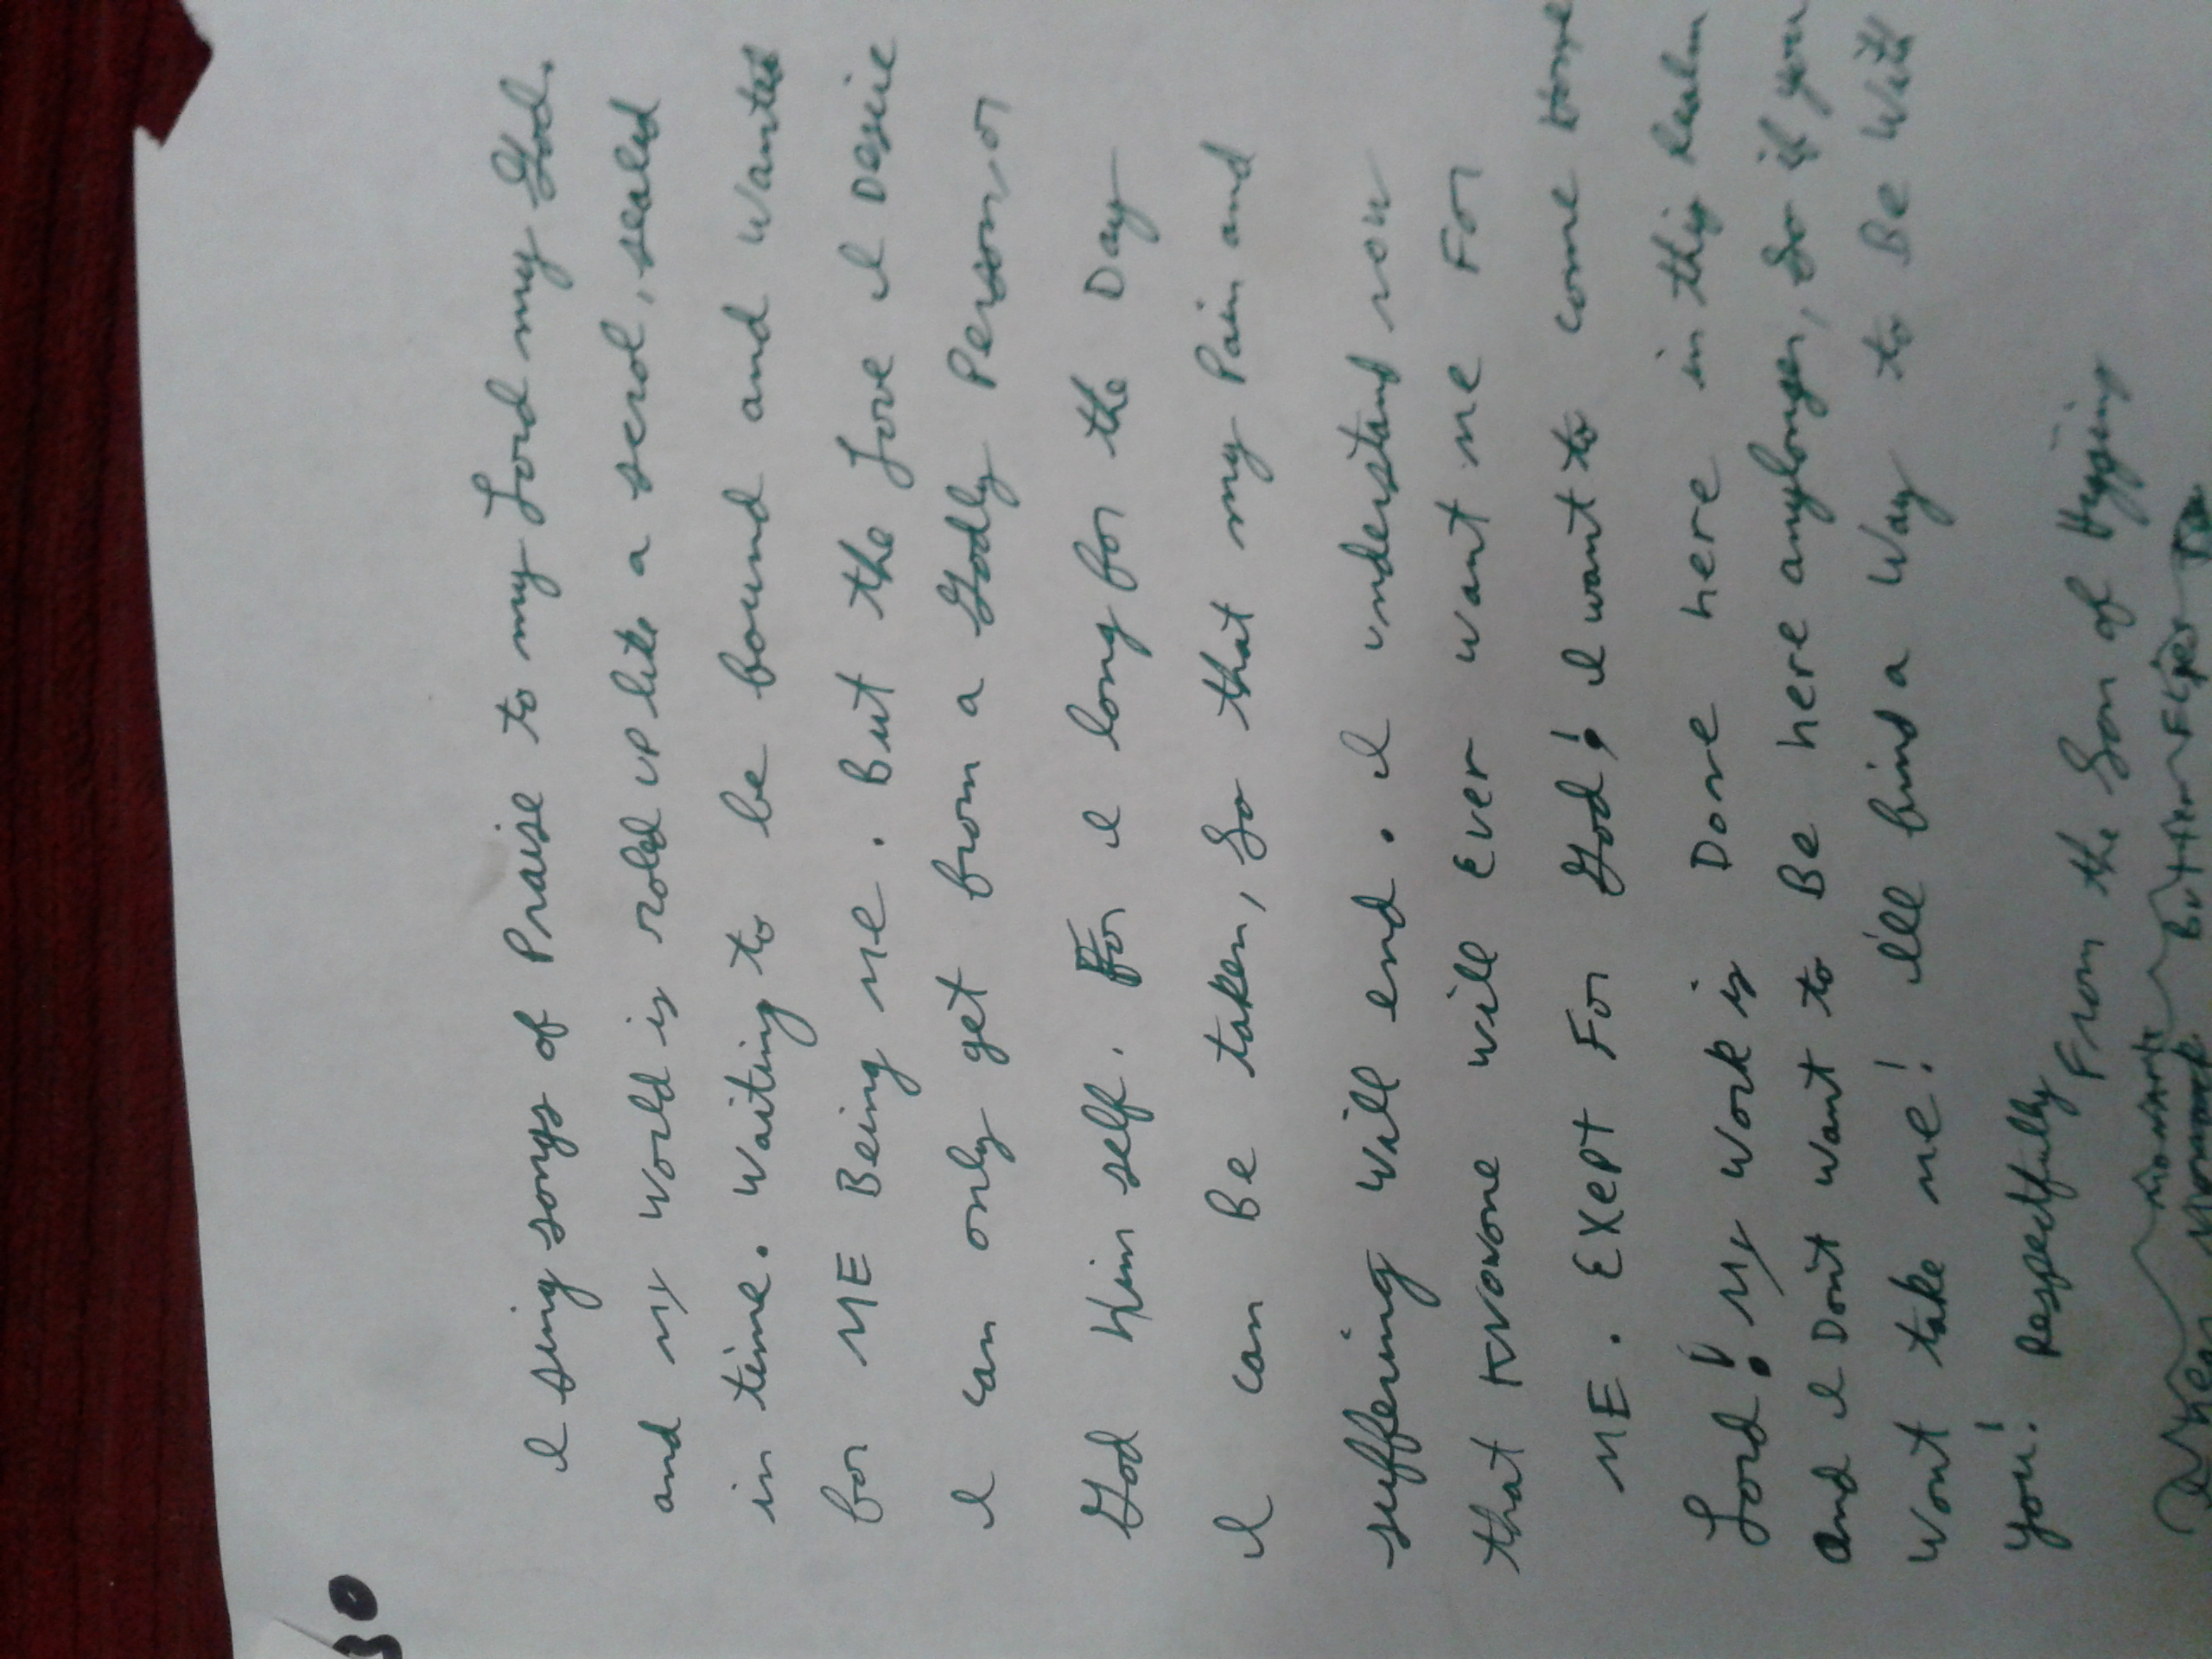 30
I sing songs of Praise to my Lord my God.
and my world is roled up like a scrol, sealed
in time. waiting to be bound and wanted
for ME Being me. But the Love I Desire
I can only get from a Godly Person or
God Him self. For I long for the Day
I can Be taken, So that my Pain and
suffering will end. I understand now
that Knowone will Ever want me For
ME. Exept For God! I want to come Home
Lord! My work is Done here in this Realm
and I Dont want to Be here anylonger, So if you
wont take me! I'll find a way to Be with
you! Respectfully
From the Son of